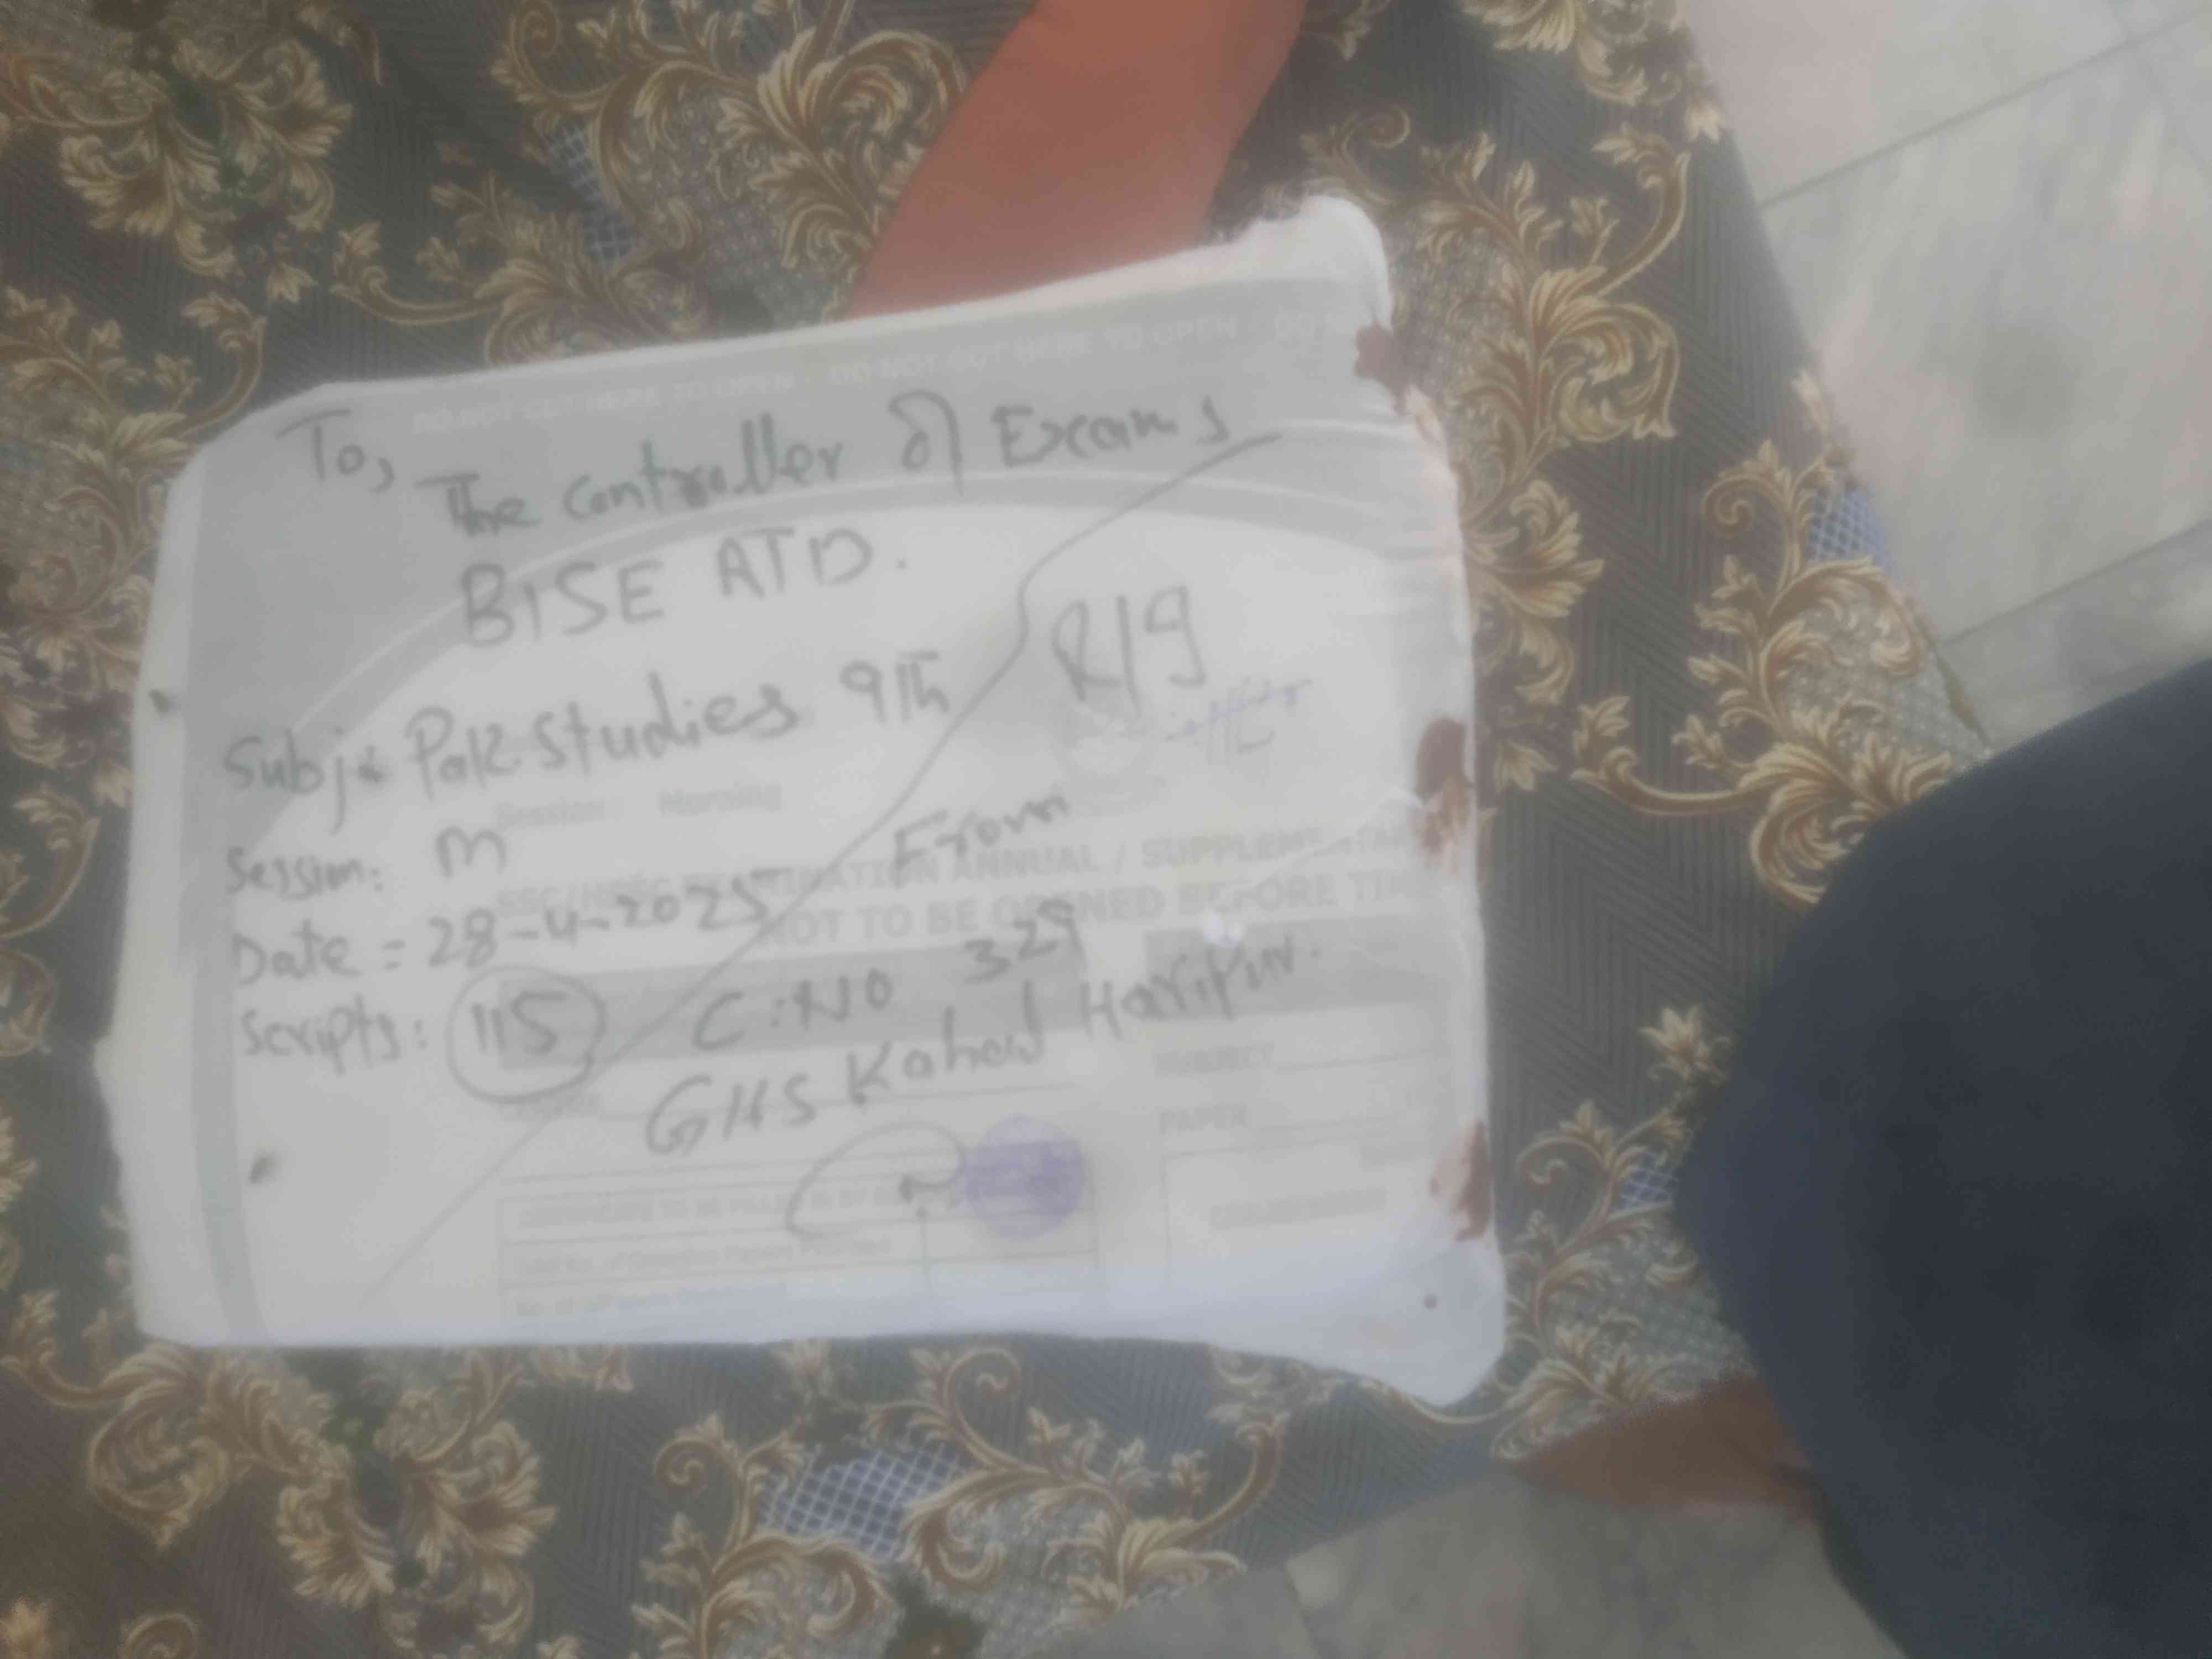 DO NOT CUT HERE TO OPEN DO NOT CUT HERE TO OPEN DO
To,
The Controller of Exams
BISE ATD.
R/9
Subj: Pak Studies 9th
Session Morning
Session: M
From
SSC/HSSC EXAMINATION ANNUAL / SUPPLEMENTA
Date = 28-4-2025
NOT TO BE OPENED BEFORE TI
Scripts: 115
C:NO 329
GHS Kahal Haripur.
SUBJECT
PAPER